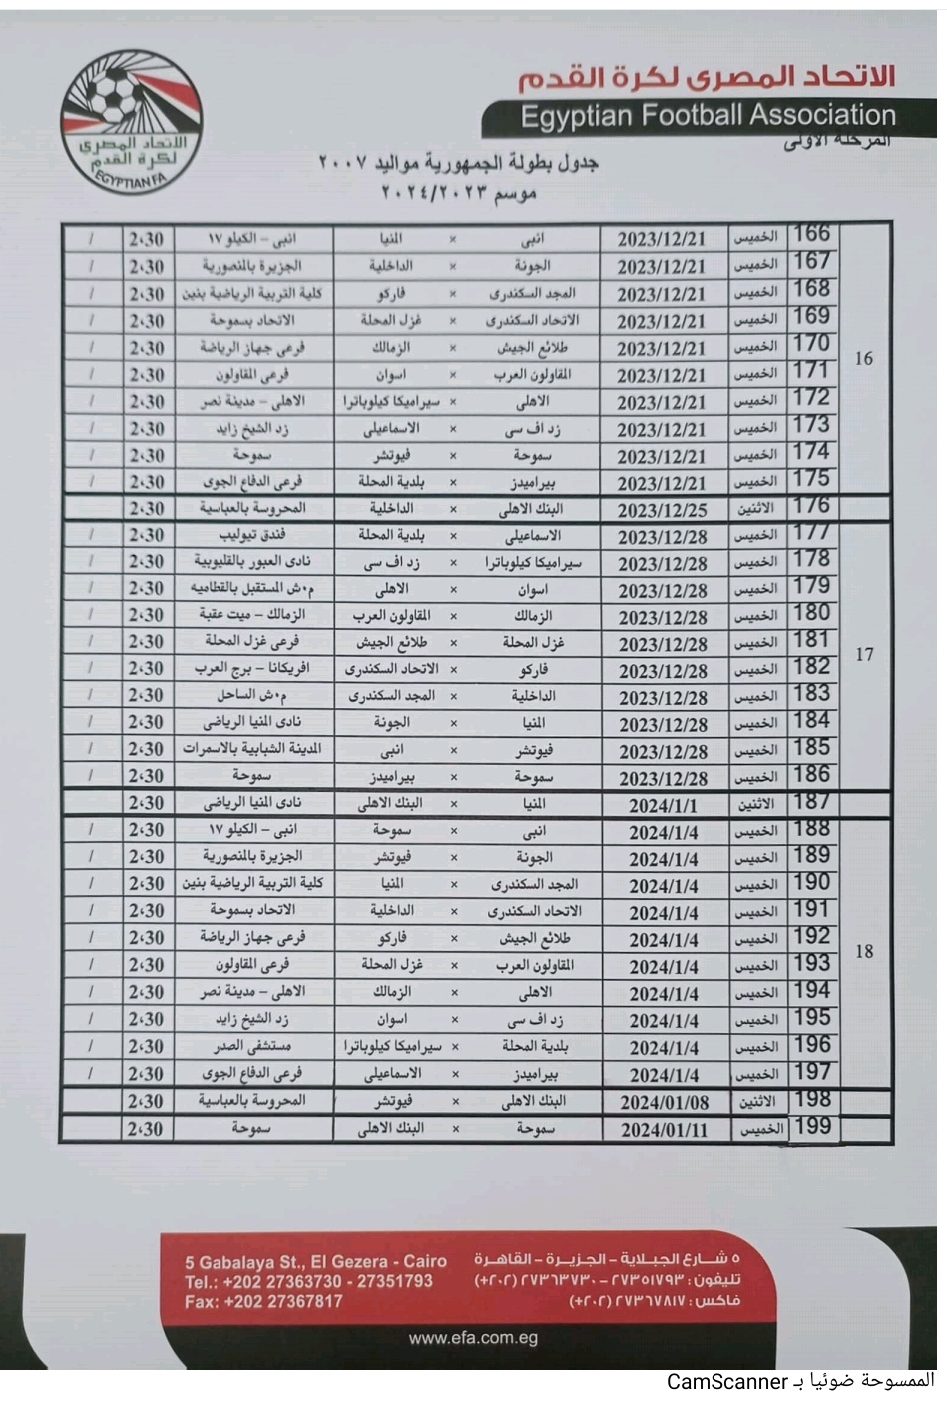 الاتحاد المصرى لكرة القدم
Egyptian Football Association
الاتحاد المصري
لكرة القدم
EGYPTIAN FA
المرحلة الاولى
جدول بطولة الجمهورية مواليد ٢٠٠٧
موسم ٢٠٢٤/٢٠٢٣
166 الخميس 2023/12/21 انبى × المنيا انبى - الكيلو ١٧ 2،30 /
167 الخميس 2023/12/21 الجونة × الداخلية الجزيرة بالمنصورية 2،30 /
168 الخميس 2023/12/21 المجد السكندرى × فاركو كلية التربية الرياضية بنين 2،30 /
169 الخميس 2023/12/21 الاتحاد السكندرى × غزل المحلة الاتحاد بسموحة 2،30 /
170 الخميس 2023/12/21 طلائع الجيش × الزمالك فرعى جهاز الرياضة 2،30 /
16 171 الخميس 2023/12/21 المقاولون العرب × اسوان فرعى المقاولون 2،30 /
172 الخميس 2023/12/21 الاهلى × سيراميكا كيلوباترا الاهلى - مدينة نصر 2،30 /
173 الخميس 2023/12/21 زد اف سى × الاسماعيلى زد الشيخ زايد 2،30 /
174 الخميس 2023/12/21 سموحة × فيوتشر سموحة 2،30 /
175 الخميس 2023/12/21 بيراميدز × بلدية المحلة فرعى الدفاع الجوى 2،30 /
176 الاثنين 2023/12/25 البنك الاهلى × الداخلية المحروسة بالعباسية 2،30
177 الخميس 2023/12/28 الاسماعيلى × بلدية المحلة فندق تيوليب 2،30 /
178 الخميس 2023/12/28 سيراميكا كيلوباترا × زد اف سى نادى العبور بالقليوبية 2،30 /
179 الخميس 2023/12/28 اسوان × الاهلى م٠ش المستقبل بالقطاميه 2،30 /
180 الخميس 2023/12/28 الزمالك × المقاولون العرب الزمالك - ميت عقبة 2،30 /
181 الخميس 2023/12/28 غزل المحلة × طلائع الجيش فرعى غزل المحلة 2،30 /
17 182 الخميس 2023/12/28 فاركو × الاتحاد السكندرى افريكانا - برج العرب 2،30 /
183 الخميس 2023/12/28 الداخلية × المجد السكندرى م٠ش الساحل 2،30 /
184 الخميس 2023/12/28 المنيا × الجونة نادى المنيا الرياضى 2،30 /
185 الخميس 2023/12/28 فيوتشر × انبى المدينة الشبابية بالاسمرات 2،30 /
186 الخميس 2023/12/28 سموحة × بيراميدز سموحة 2،30 /
187 الاثنين 2024/1/1 المنيا × البنك الاهلى نادى المنيا الرياضى 2،30
188 الخميس 2024/1/4 انبى × سموحة انبى - الكيلو ١٧ 2،30 /
189 الخميس 2024/1/4 الجونة × فيوتشر الجزيرة بالمنصورية 2،30 /
190 الخميس 2024/1/4 المجد السكندرى × المنيا كلية التربية الرياضية بنين 2،30 /
191 الخميس 2024/1/4 الاتحاد السكندرى × الداخلية الاتحاد بسموحة 2،30 /
192 الخميس 2024/1/4 طلائع الجيش × فاركو فرعى جهاز الرياضة 2،30 /
18 193 الخميس 2024/1/4 المقاولون العرب × غزل المحلة فرعى المقاولون 2،30 /
194 الخميس 2024/1/4 الاهلى × الزمالك الاهلى - مدينة نصر 2،30 /
195 الخميس 2024/1/4 زد اف سى × اسوان زد الشيخ زايد 2،30 /
196 الخميس 2024/1/4 بلدية المحلة × سيراميكا كيلوباترا مستشفى الصدر 2،30 /
197 الخميس 2024/1/4 بيراميدز × الاسماعيلى فرعى الدفاع الجوى 2،30 /
198 الاثنين 2024/01/08 البنك الاهلى × فيوتشر المحروسة بالعباسية 2،30
199 الخميس 2024/01/11 سموحة × البنك الاهلى سموحة 2،30
٥ شارع الجبلاية - الجزيرة - القاهرة
تليفون : ٢٧٣٥١٧٩٣ - ٢٧٣٦٣٧٣٠ (٢٠٢+)
فاكس : ٢٧٣٦٧٨١٧ (٢٠٢+)
5 Gabalaya St., El Gezera - Cairo
Tel.: +202 27363730 - 27351793
Fax: +202 27367817
www.efa.com.eg
الممسوحة ضوئيا بـ CamScanner